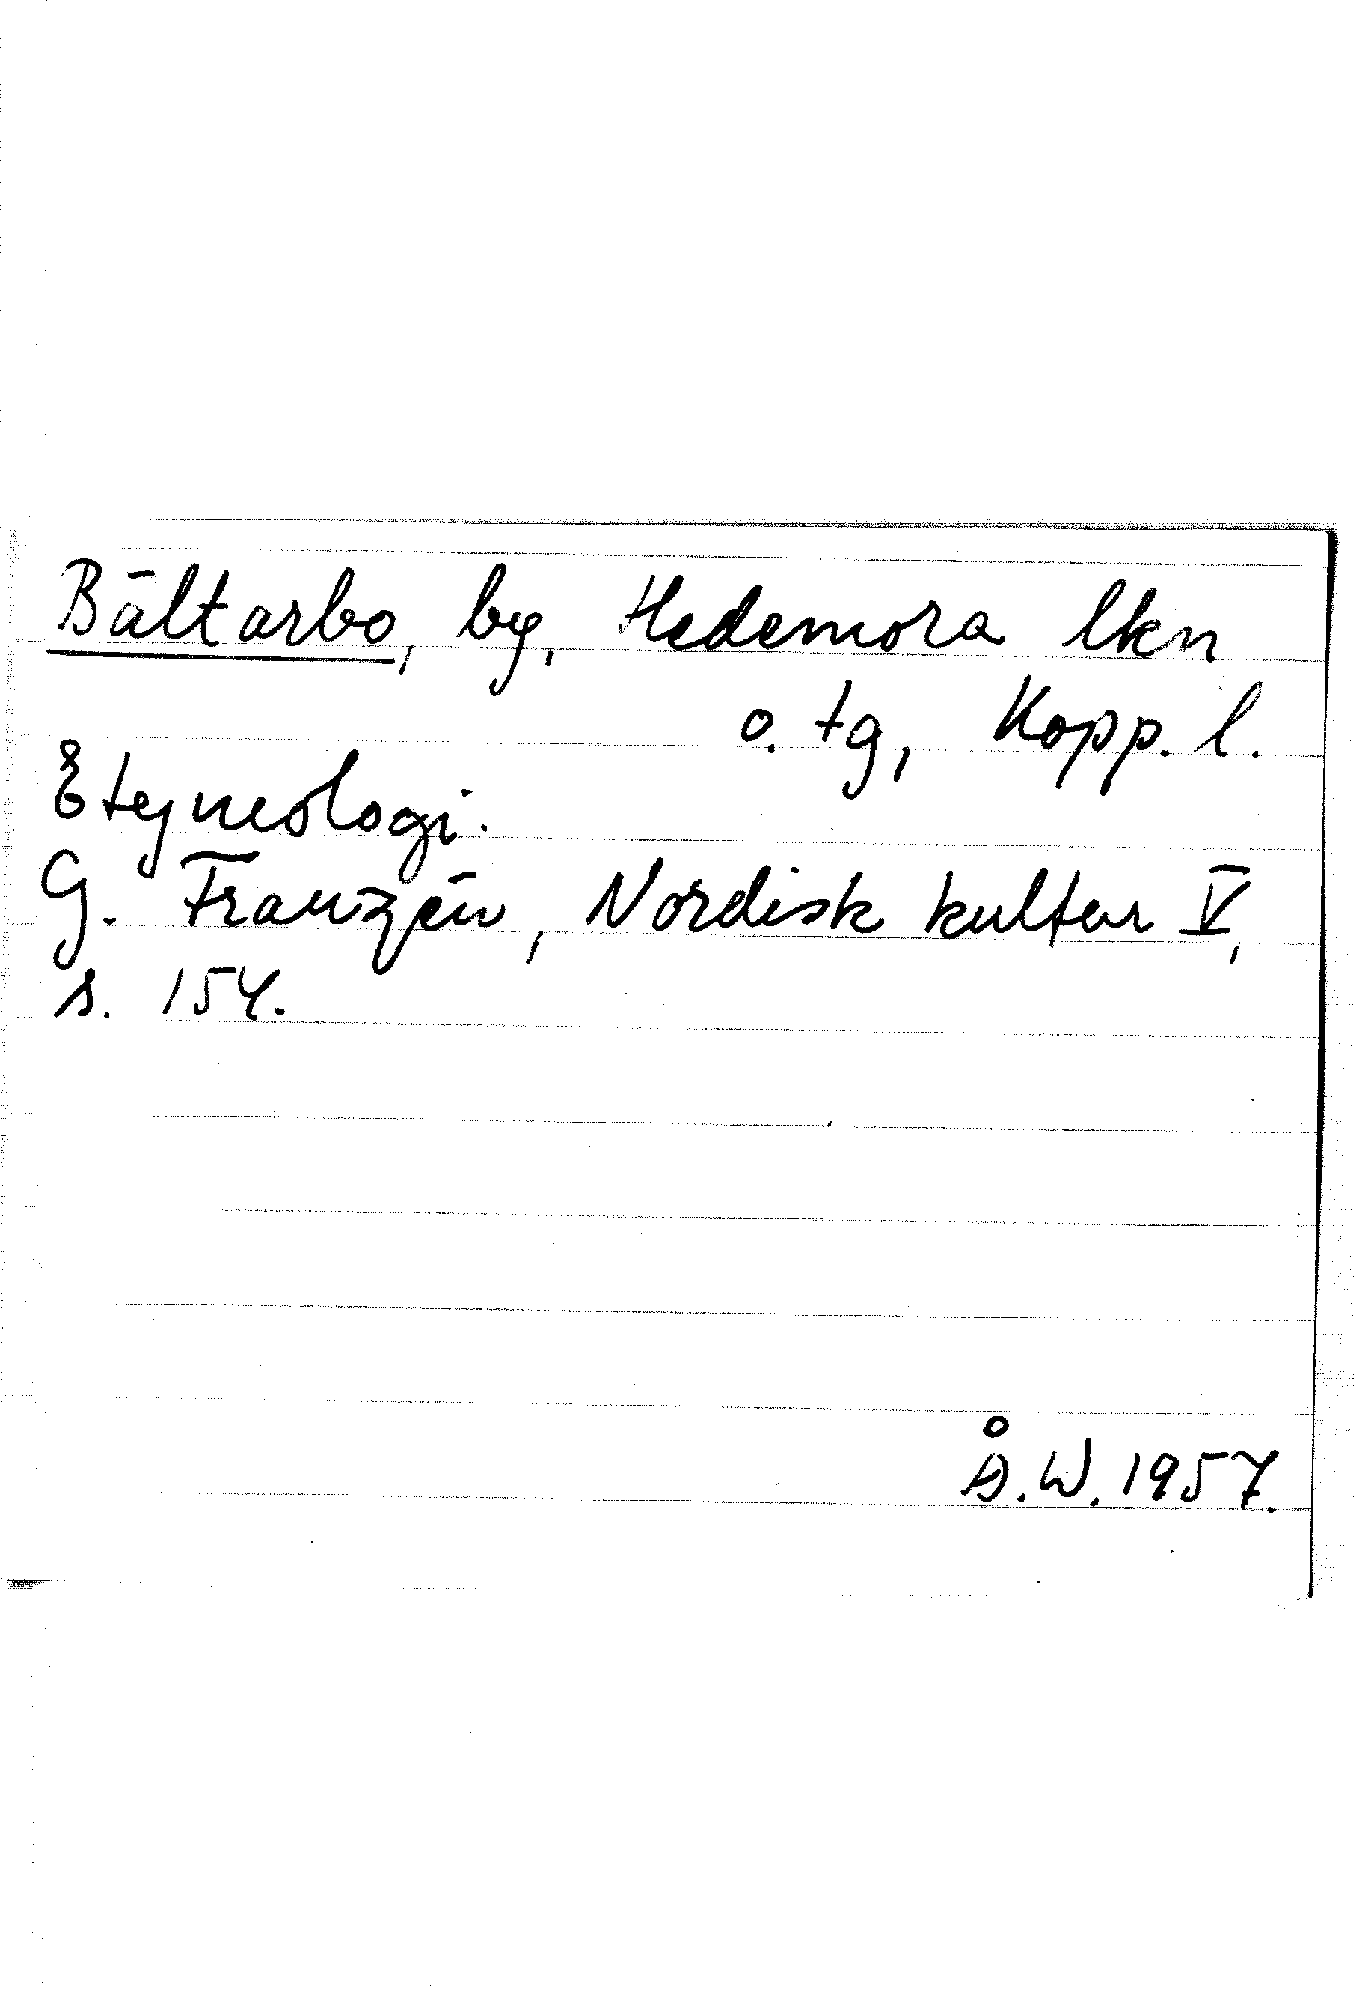 Bältarbo, by, Hedemora lkn
o. tg, Kopp. l.
Etymologi.
G. Franzén, Nordisk kultur V,
s. 154.
Å.W. 1957.